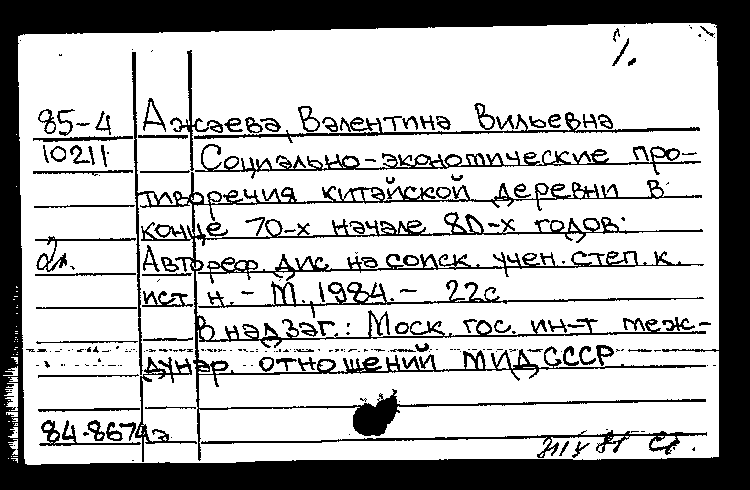 85-4 Ажаева, Валентина Вильевна
10211 Социально-экономические про-
тиворечия китайской деревни в
конце 70-х начале 80-х годов:
2л. Автореф. дис. на соиск. учен. степ. к.
ист. н. - М., 1984. - 22с.
В надзаг.: Моск. гос. ин-т меж-
дунар. отношений МИД СССР.
84-8674а